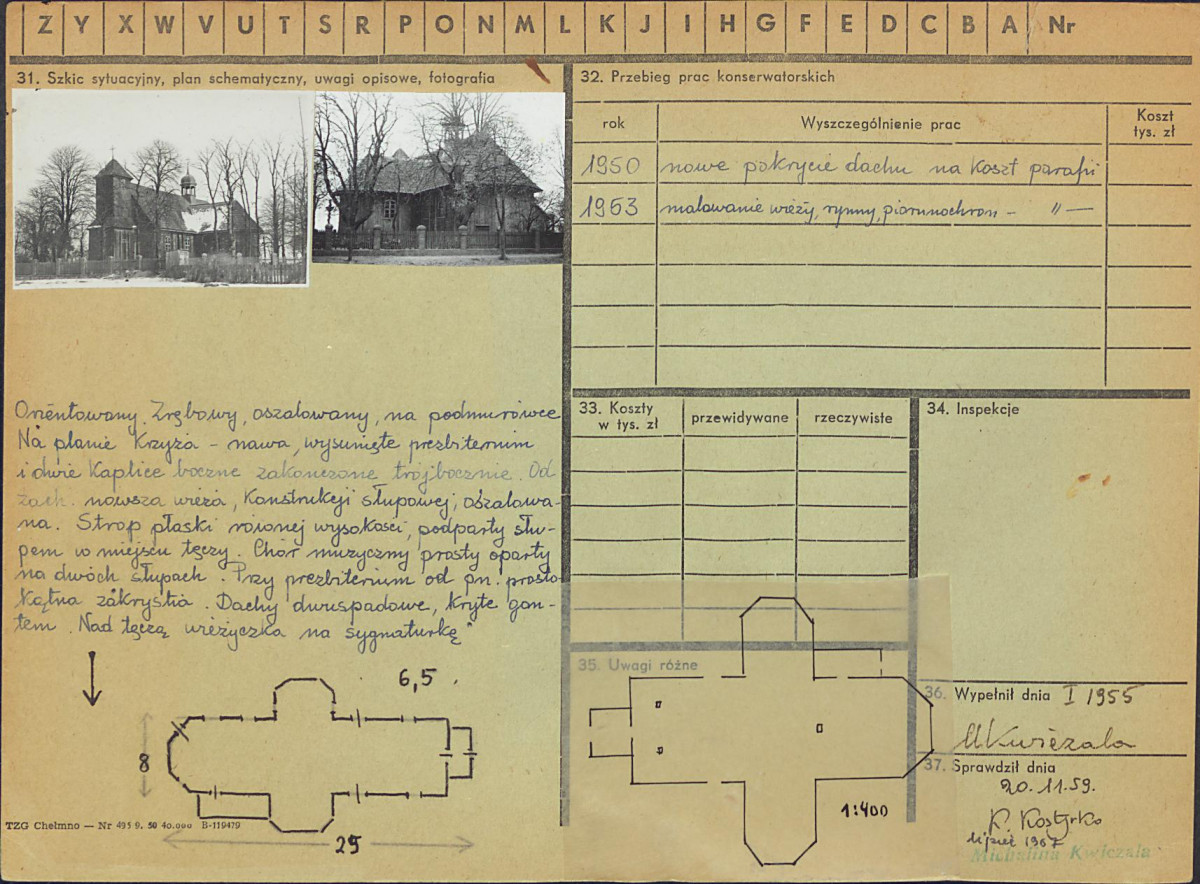 Z Y X W V U T S R P O N M L K J I H G F E D C B A Nr
31. Szkic sytuacyjny, plan schematyczny, uwagi opisowe, fotografia
Orientowany. Zrębowy, oszalowany, na podmurówce
Na planie Krzyża – nawa, wysunięte prezbiterium
i dwie Kaplice boczne zakończone trójbocznie. Od
zach. nowsza wieża, Konstrukcji słupowej, oszalowa-
na. Strop płaski równej wysokości, podparty słu-
pem w miejscu tęczy. Chór muzyczny prosty oparty
na dwóch słupach. Przy prezbiterium od pn. prosto
kątna zakrystia. Dachy dwuspadowe, Kryte gon-
tem. Nad tęczą wieżyczka na sygnaturkę"
6,5
8
25
TZG Chełmno — Nr 495 9. 50 40.000 B-119479
32. Przebieg prac konserwatorskich
rok Wyszczególnienie prac Koszt tys. zł
1950 nowe pokrycie dachu na Koszt parafii
1953 malowanie wieży, rynny, piorunochron – "—
33. Koszty w tys. zł przewidywane rzeczywiste
34. Inspekcje
35. Uwagi różne
1:400
36. Wypełnił dnia I 1955
MKwiczala
37. Sprawdził dnia
20.11.59.
K. Kostyrko
lipiec 1967
Michalina Kwiczala